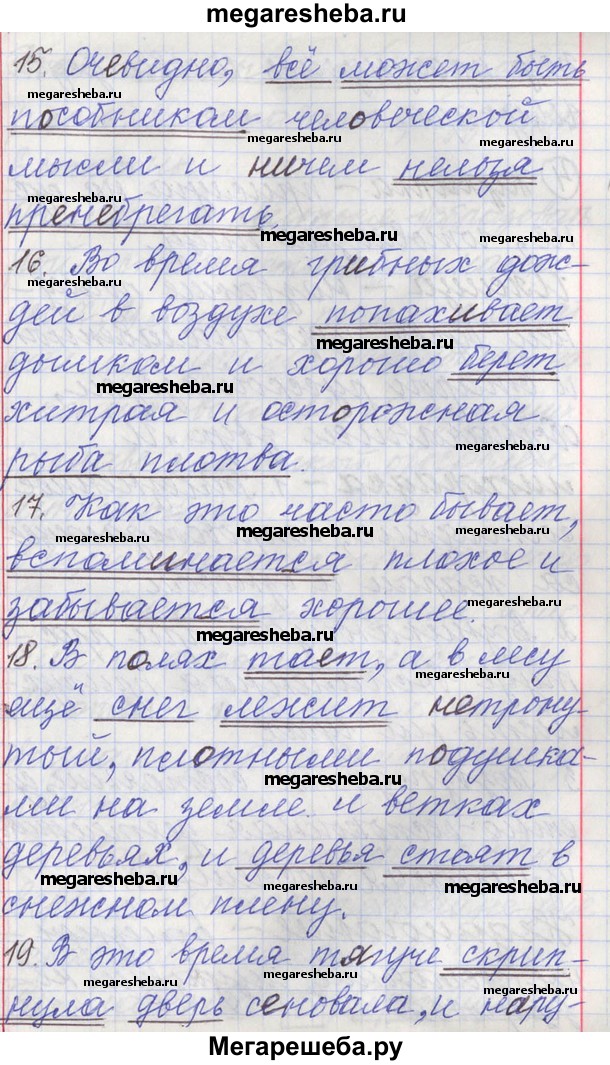 megaresheba.ru
15. Очевидно, всё может быть
пособником человеческой
megaresheba.ru megaresheba.ru
мысли и ничем нельзя
megaresheba.ru
пренебрегать.
megaresheba.ru
16. Во время грибных дож-
megaresheba.ru
дей в воздухе попахивает
megaresheba.ru
дымком и хорошо берет
megaresheba.ru
хитрая и осторожная
megaresheba.ru
рыба плотва.
17. Как это часто бывает,
megaresheba.ru megaresheba.ru
вспоминается плохое и
забывается хорошее.
megaresheba.ru
megaresheba.ru
18. В полях тает, а в лесу
megaresheba.ru
ещё снег лежит нетрону-
тый, плотными подушка-
megaresheba.ru
ми на земле и ветках
деревьях, и деревья стоят в
megaresheba.ru megaresheba.ru megaresheba.ru
снежном плену.
19. В это время тягуче скрип-
megaresheba.ru megaresheba.ru
нула дверь сеновала, и нару-
megaresheba.ru megaresheba.ru
Мегарешеба.ру